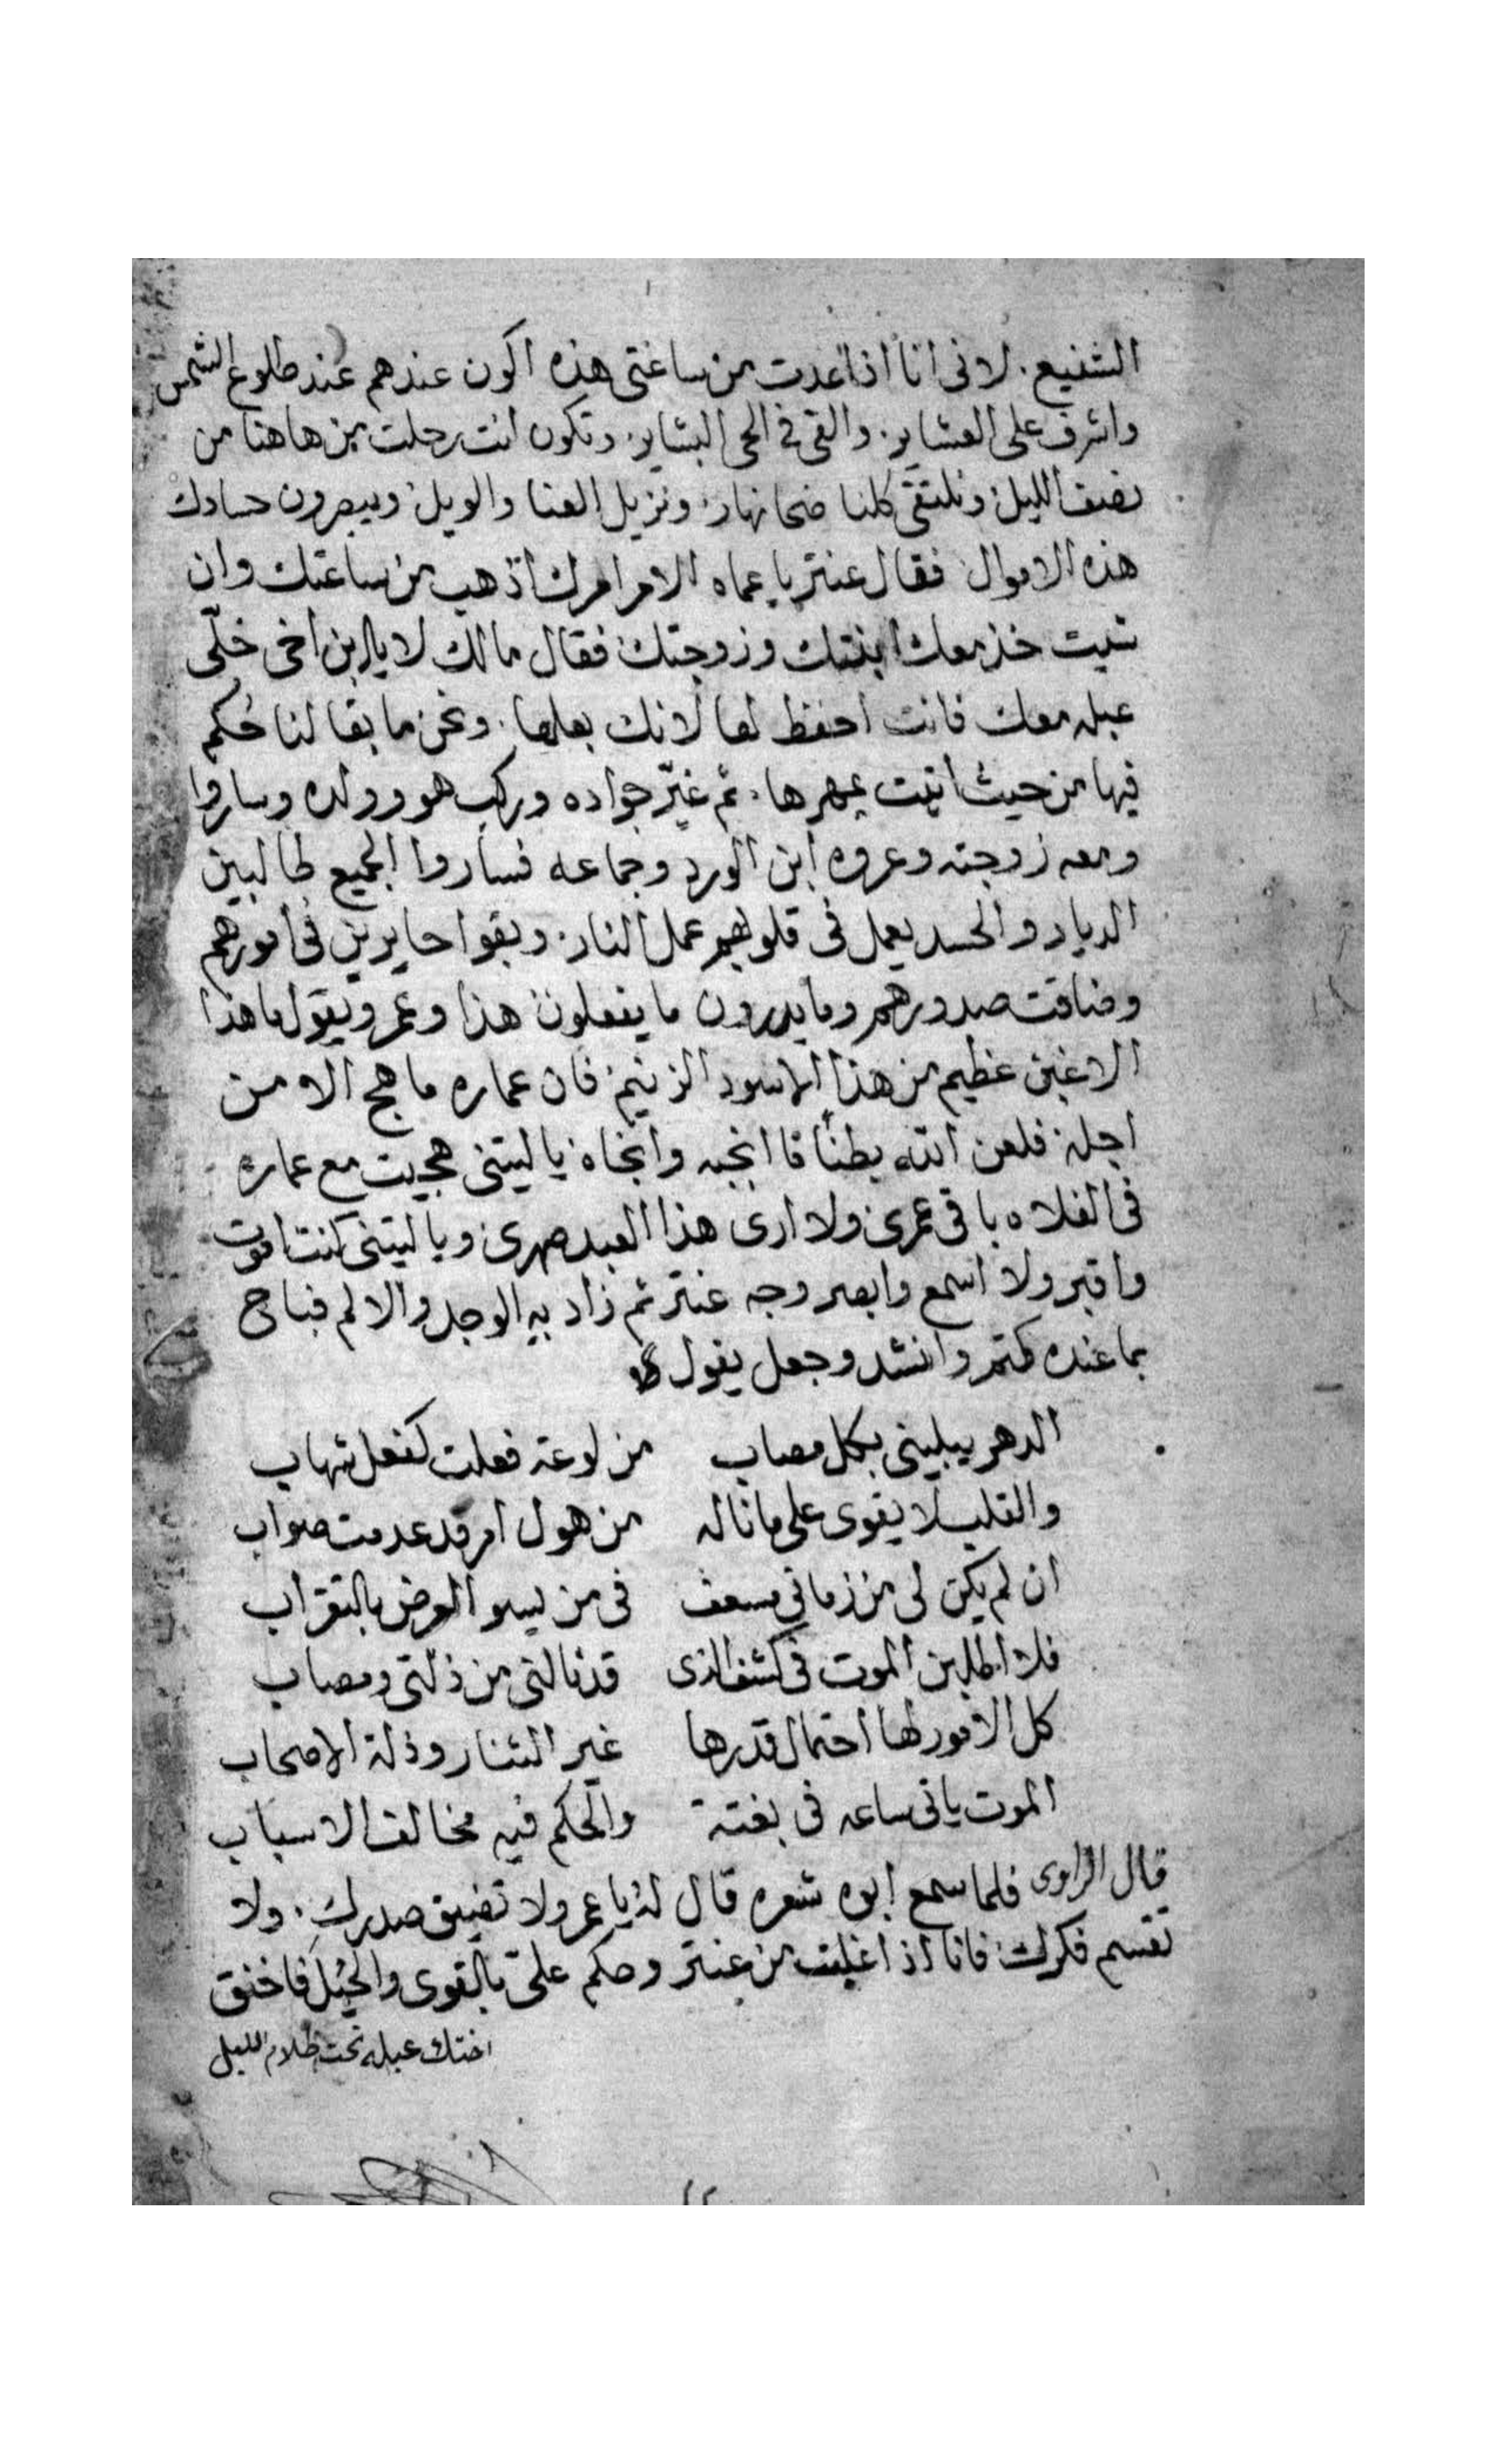 الشفيع. لانى انا اذا عدت من ساعتى هذه اكون عندهم عند طلوع الشمس
واشرف على العشاير. والقى فى الحى البشاير. وتكون انت رحلت من هاهنا من
نصف الليل ونلتقى كلنا ضحا نهار ونزيل العنا والويل ويبصرون حسادك
هذه الاموال فقال عنتر يا عماه الامر امرك اذهب من ساعتك وان
شيت خذ معك ابنتك وزوجتك فقال مالك لا يا ابن اخى خلّى
عبله معك فانت احفظ لها لانك بعلها. ونحن ما بقا لنا حُكم
فيها من حيث اتيت بمهرها. ثم غيّر جواده وركب هو وولده وساروا
ومعه زوجته وعروه ابن الورد وجماعه فساروا الجميع طالبين
الديار والحسد يعمل فى قلوبهم عمل النار. وبقوا حايرين فى امورهم
وضاقت صدورهم وما يدرون ما يفعلون هذا وعمرو يقول ما هذا
الا غبن عظيم من هذا الاسود الزنيم فان عماره ما هج الا من
اجله فلعن الله بطناً انجبه وانجاه يا ليتنى هجيت مع عماره
فى الفلاه باقى عمرى ولا ارى هذا العبد صهرى ويا ليتنى كنت اموت
واقبر ولا اسمع وابصر وجه عنتر ثم زاد به الوجد والالم فباح
بما عنده كتم وانشد وجعل يقول
الدهر يبلينى بكل مصاب من لوعة فعلت كفعل شهاب
والقلب لا يقوى على ما ناله من هول امر قد عدمت صواب
ان لم يكن لى من زمانى مسعف فى من يسو العرض بالتقراب
فلا اطلبن الموت فى كشف الذى قد نالنى من ذلتى ومصاب
كل الامور لها احتمال قدرها غير الشنار وذلة الاصحاب
الموت ياتى ساعه فى بغتة والحكم فيه مخالف الاسباب
قال الراوى فلما سمع ابوه شعره قال له يا عمرو لا تضيق صدرك. ولا
تقسم فكرك فانا اذا غلبت من عنتر وحكم علىّ بالقوى والحيل فاخنق
اختك عبله تحت ظلام الليل